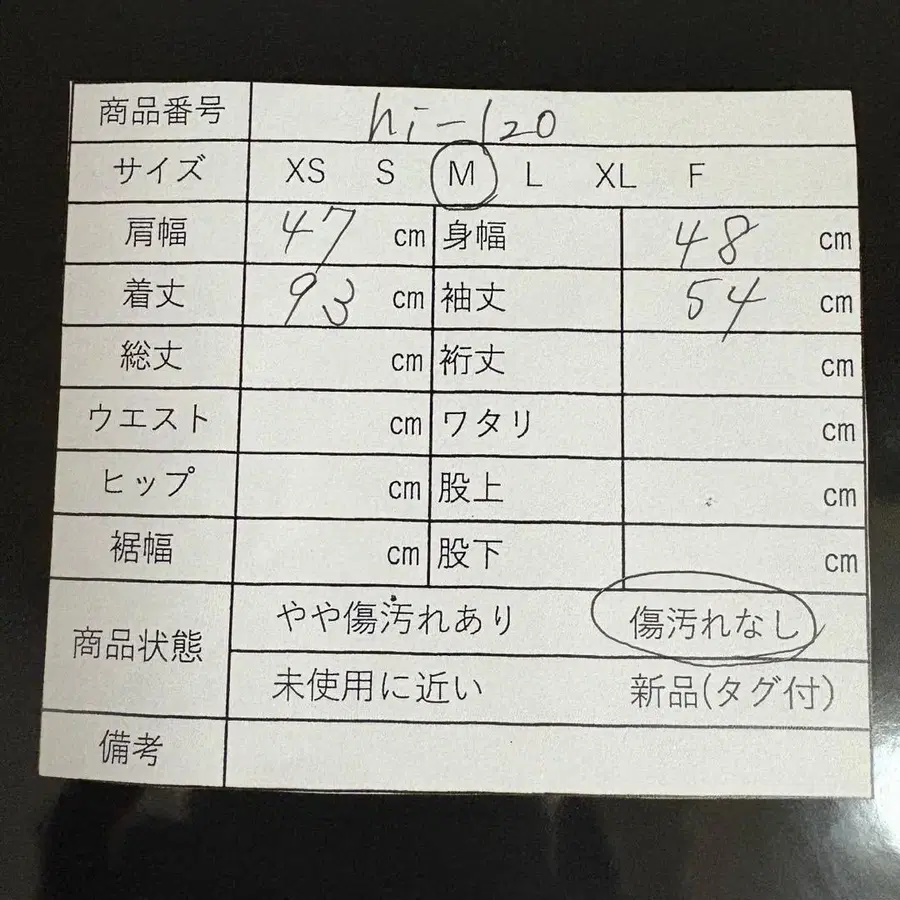 商品番号 hi-120
サイズ XS S M L XL F
肩幅 47 cm 身幅 48 cm
着丈 93 cm 袖丈 54 cm
総丈 cm 裄丈 cm
ウエスト cm ワタリ cm
ヒップ cm 股上 cm
裾幅 cm 股下 cm
商品状態 やや傷汚れあり 傷汚れなし
未使用に近い 新品(タグ付)
備考